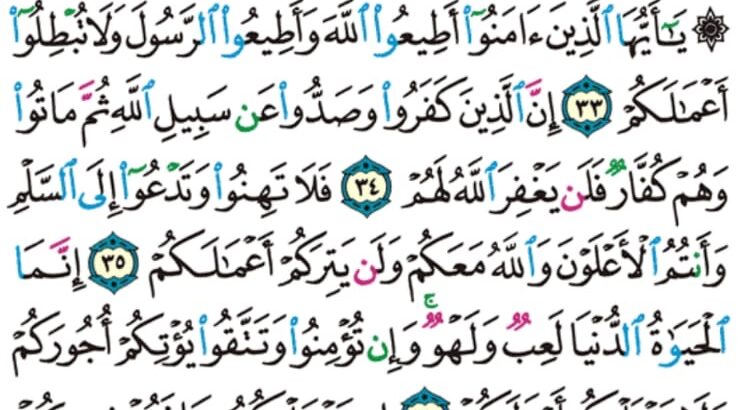 ۞ يَـٰٓأَيُّهَا ٱلَّذِينَ ءَامَنُوٓا۟ أَطِيعُوا۟ ٱللَّهَ وَأَطِيعُوا۟ ٱلرَّسُولَ وَلَا تُبْطِلُوٓا۟
أَعْمَـٰلَكُمْ ٣٣ إِنَّ ٱلَّذِينَ كَفَرُوا۟ وَصَدُّوا۟ عَن سَبِيلِ ٱللَّهِ ثُمَّ مَاتُوا۟
وَهُمْ كُفَّارٌ فَلَن يَغْفِرَ ٱللَّهُ لَهُمْ ٣٤ فَلَا تَهِنُوا۟ وَتَدْعُوٓا۟ إِلَى ٱلسَّلْمِ
وَأَنتُمُ ٱلْأَعْلَوْنَ وَٱللَّهُ مَعَكُمْ وَلَن يَتِرَكُمْ أَعْمَـٰلَكُمْ ٣٥ إِنَّمَا
ٱلْحَيَوٰةُ ٱلدُّنْيَا لَعِبٌ وَلَهْوٌ ۚ وَإِن تُؤْمِنُوا۟ وَتَتَّقُوا۟ يُؤْتِكُمْ أُجُورَكُمْ